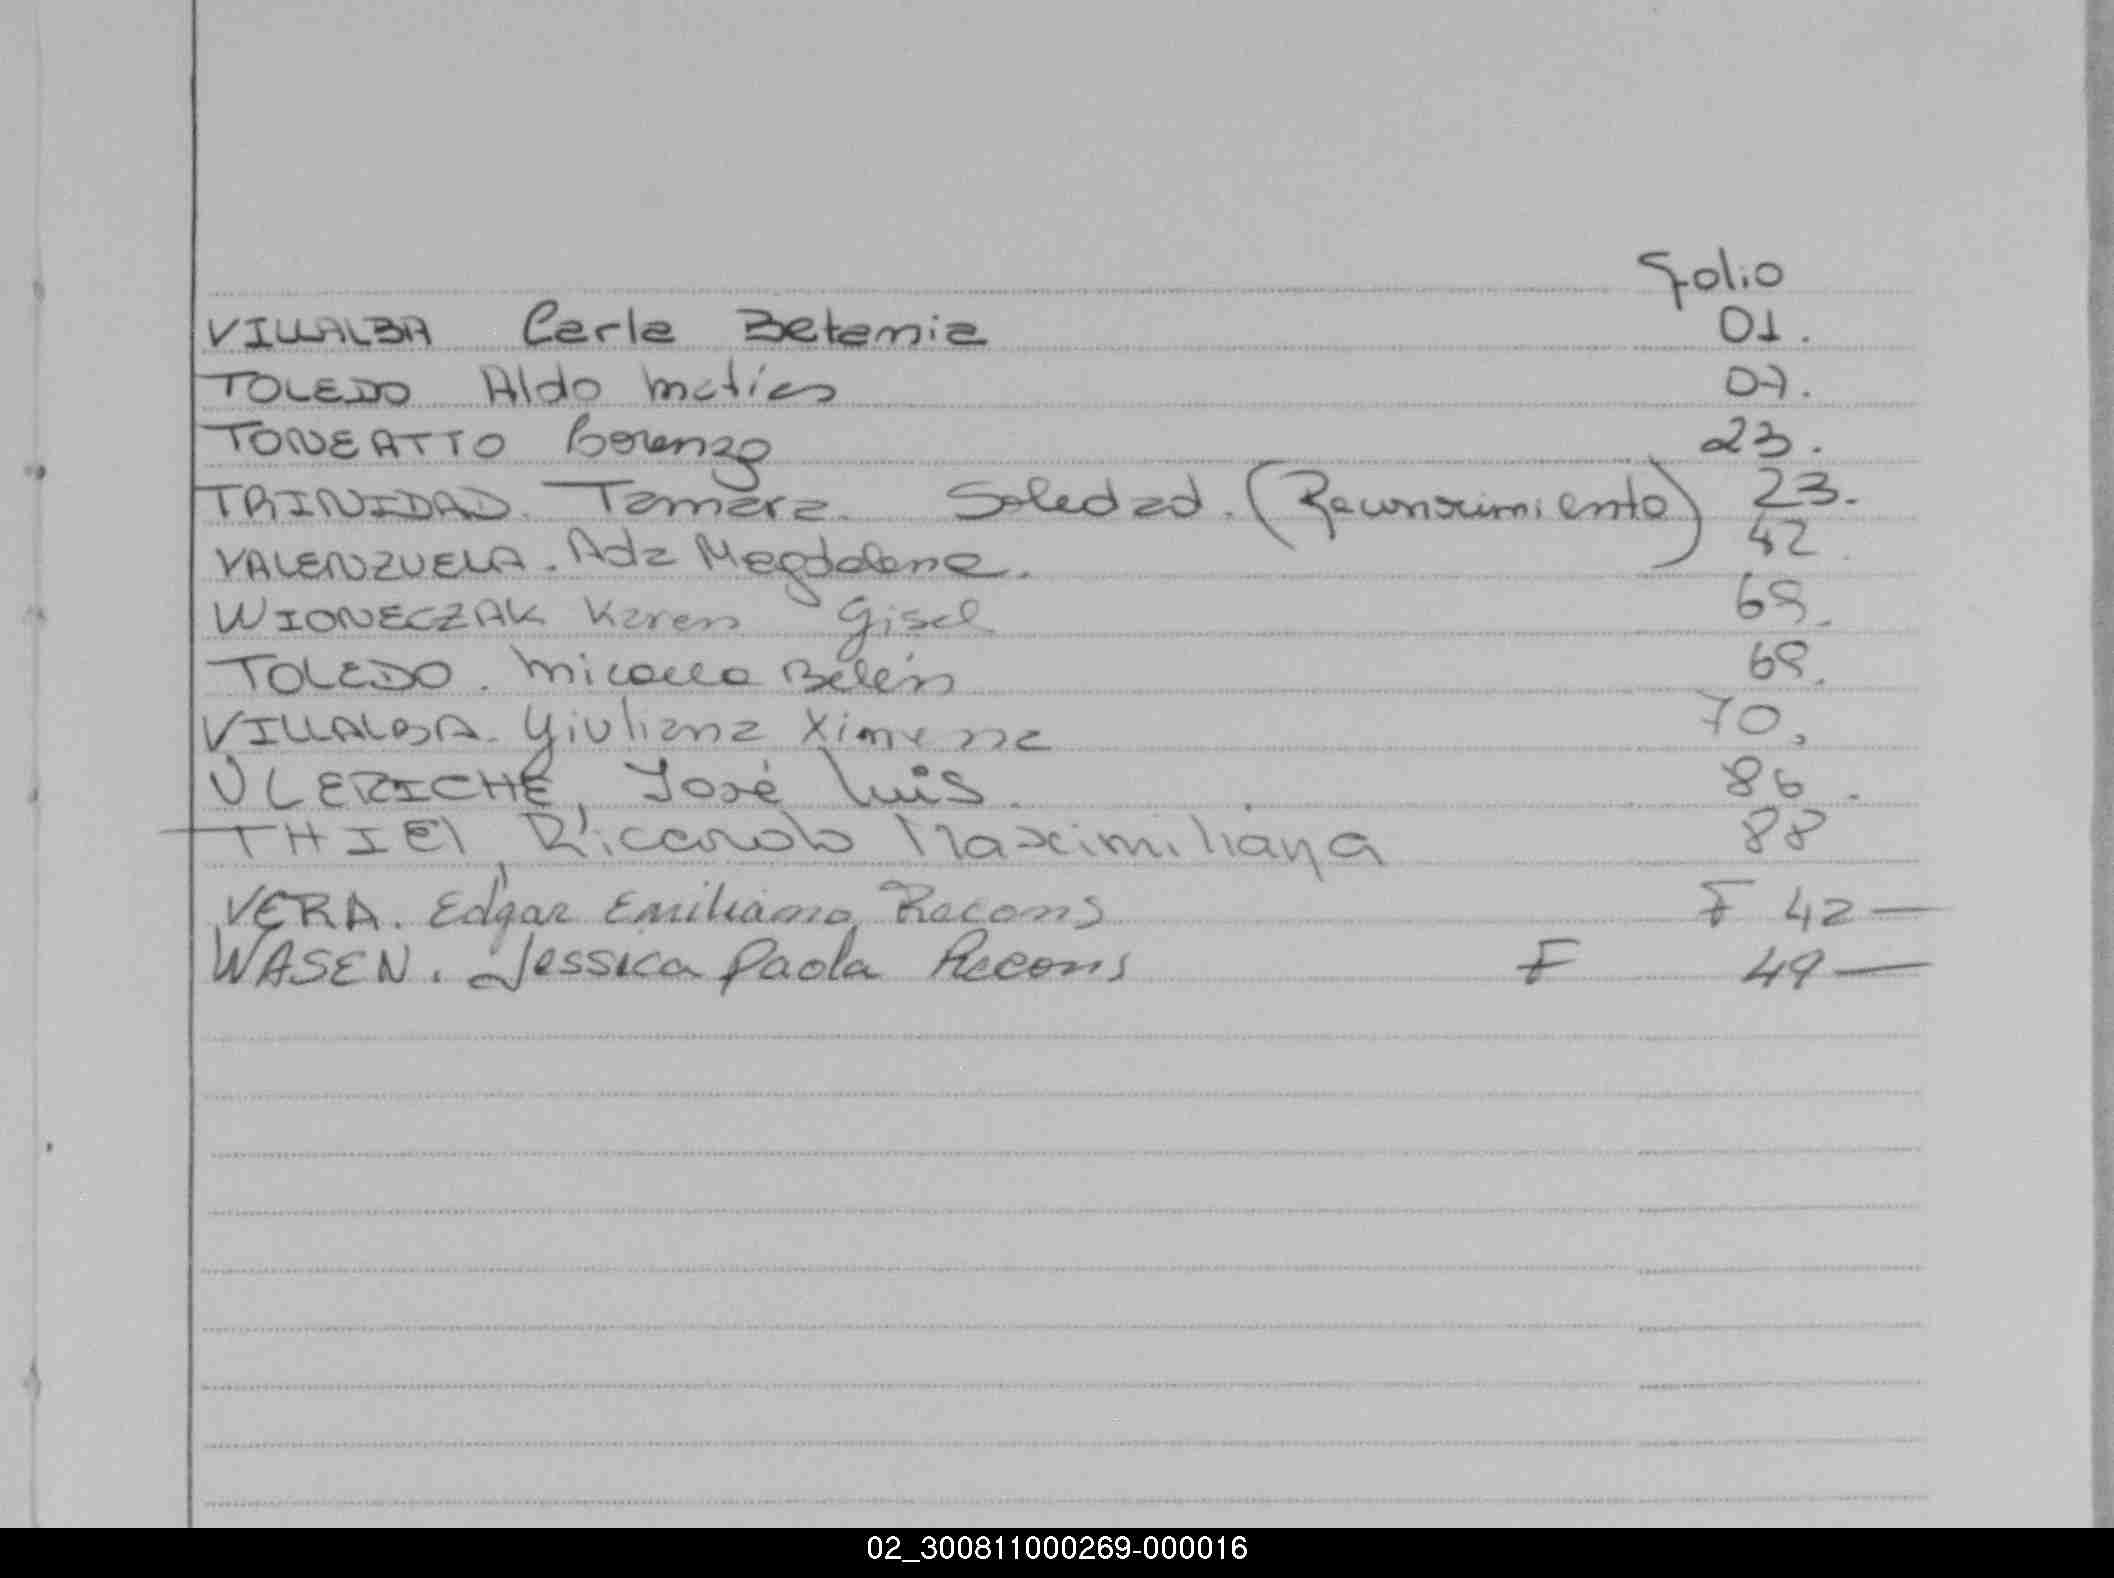 Folio
VILLALBA Carla Betania 01.
TOLEDO Aldo Matías 07.
TONEATTO Lorenzo 23.
TRINIDAD. Tamara. Soledad. (Reconocimiento) 23.
VALENZUELA. Ada Magdalena. 42.
WIONECZAK Karen Gisel 69.
TOLEDO. Micaela Belén 69.
VILLALBA. Yiuliana Ximena 70.
ULERICHE, José Luis. 86.
THIEL, Riccardo Maximiliano 88
VERA. Edgar Emiliano Recons F 42—
WASEN. Jessica Paola Recons F 49—
02_300811000269-000016